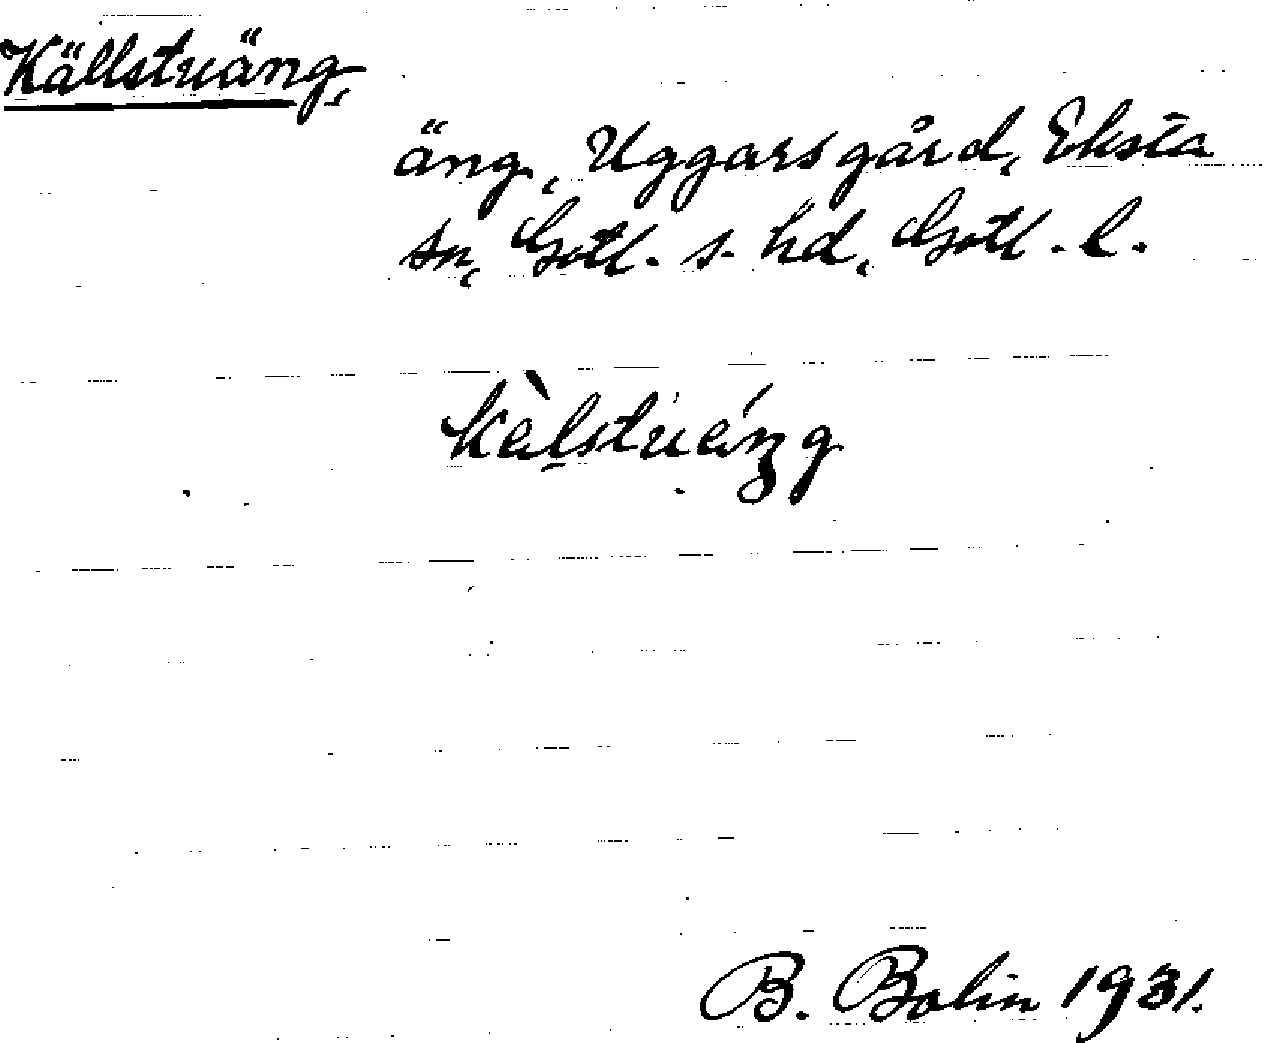 Källstuäng,
äng, Uggarsgård, Eksta
sn, Gotl. s. hd, Gotl. l.
kälstuáng
B. Bolin 1931.